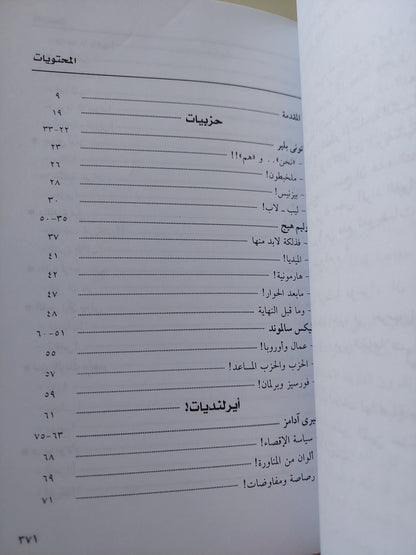 المحتويات
المقدمة ٩
حزبيات ١٩
تونى بلير ٢٢-٣٣
- «نحن».. و «هم»!! ٢٣
- ملخبطون! ٢٦
- بيزنيس! ٢٨
- ليب ـ لاب! ٣٠
وليم هيج ٣٥-٥٠
- فذلكة لابد منها ٣٧
- الميديا! ٤١
- هارمونية! ٤٢
- مابعد الحوار! ٤٧
- وما قبل النهاية ٤٨
ليكس سالموند ٥١-٦٠
- عمال وأوروبا! ٥٥
- الحزب والحزب المساعد! ٥٧
- فورسيز وبرلمان! ٥٩
أيرلنديات! ٦١
يرى آدامز ٦٣-٧٥
سياسة الإقصاء! ٦٨
ألوان من المناورة! ٦٩
رصاصة ومفاوضات! ٧١
٣٧١